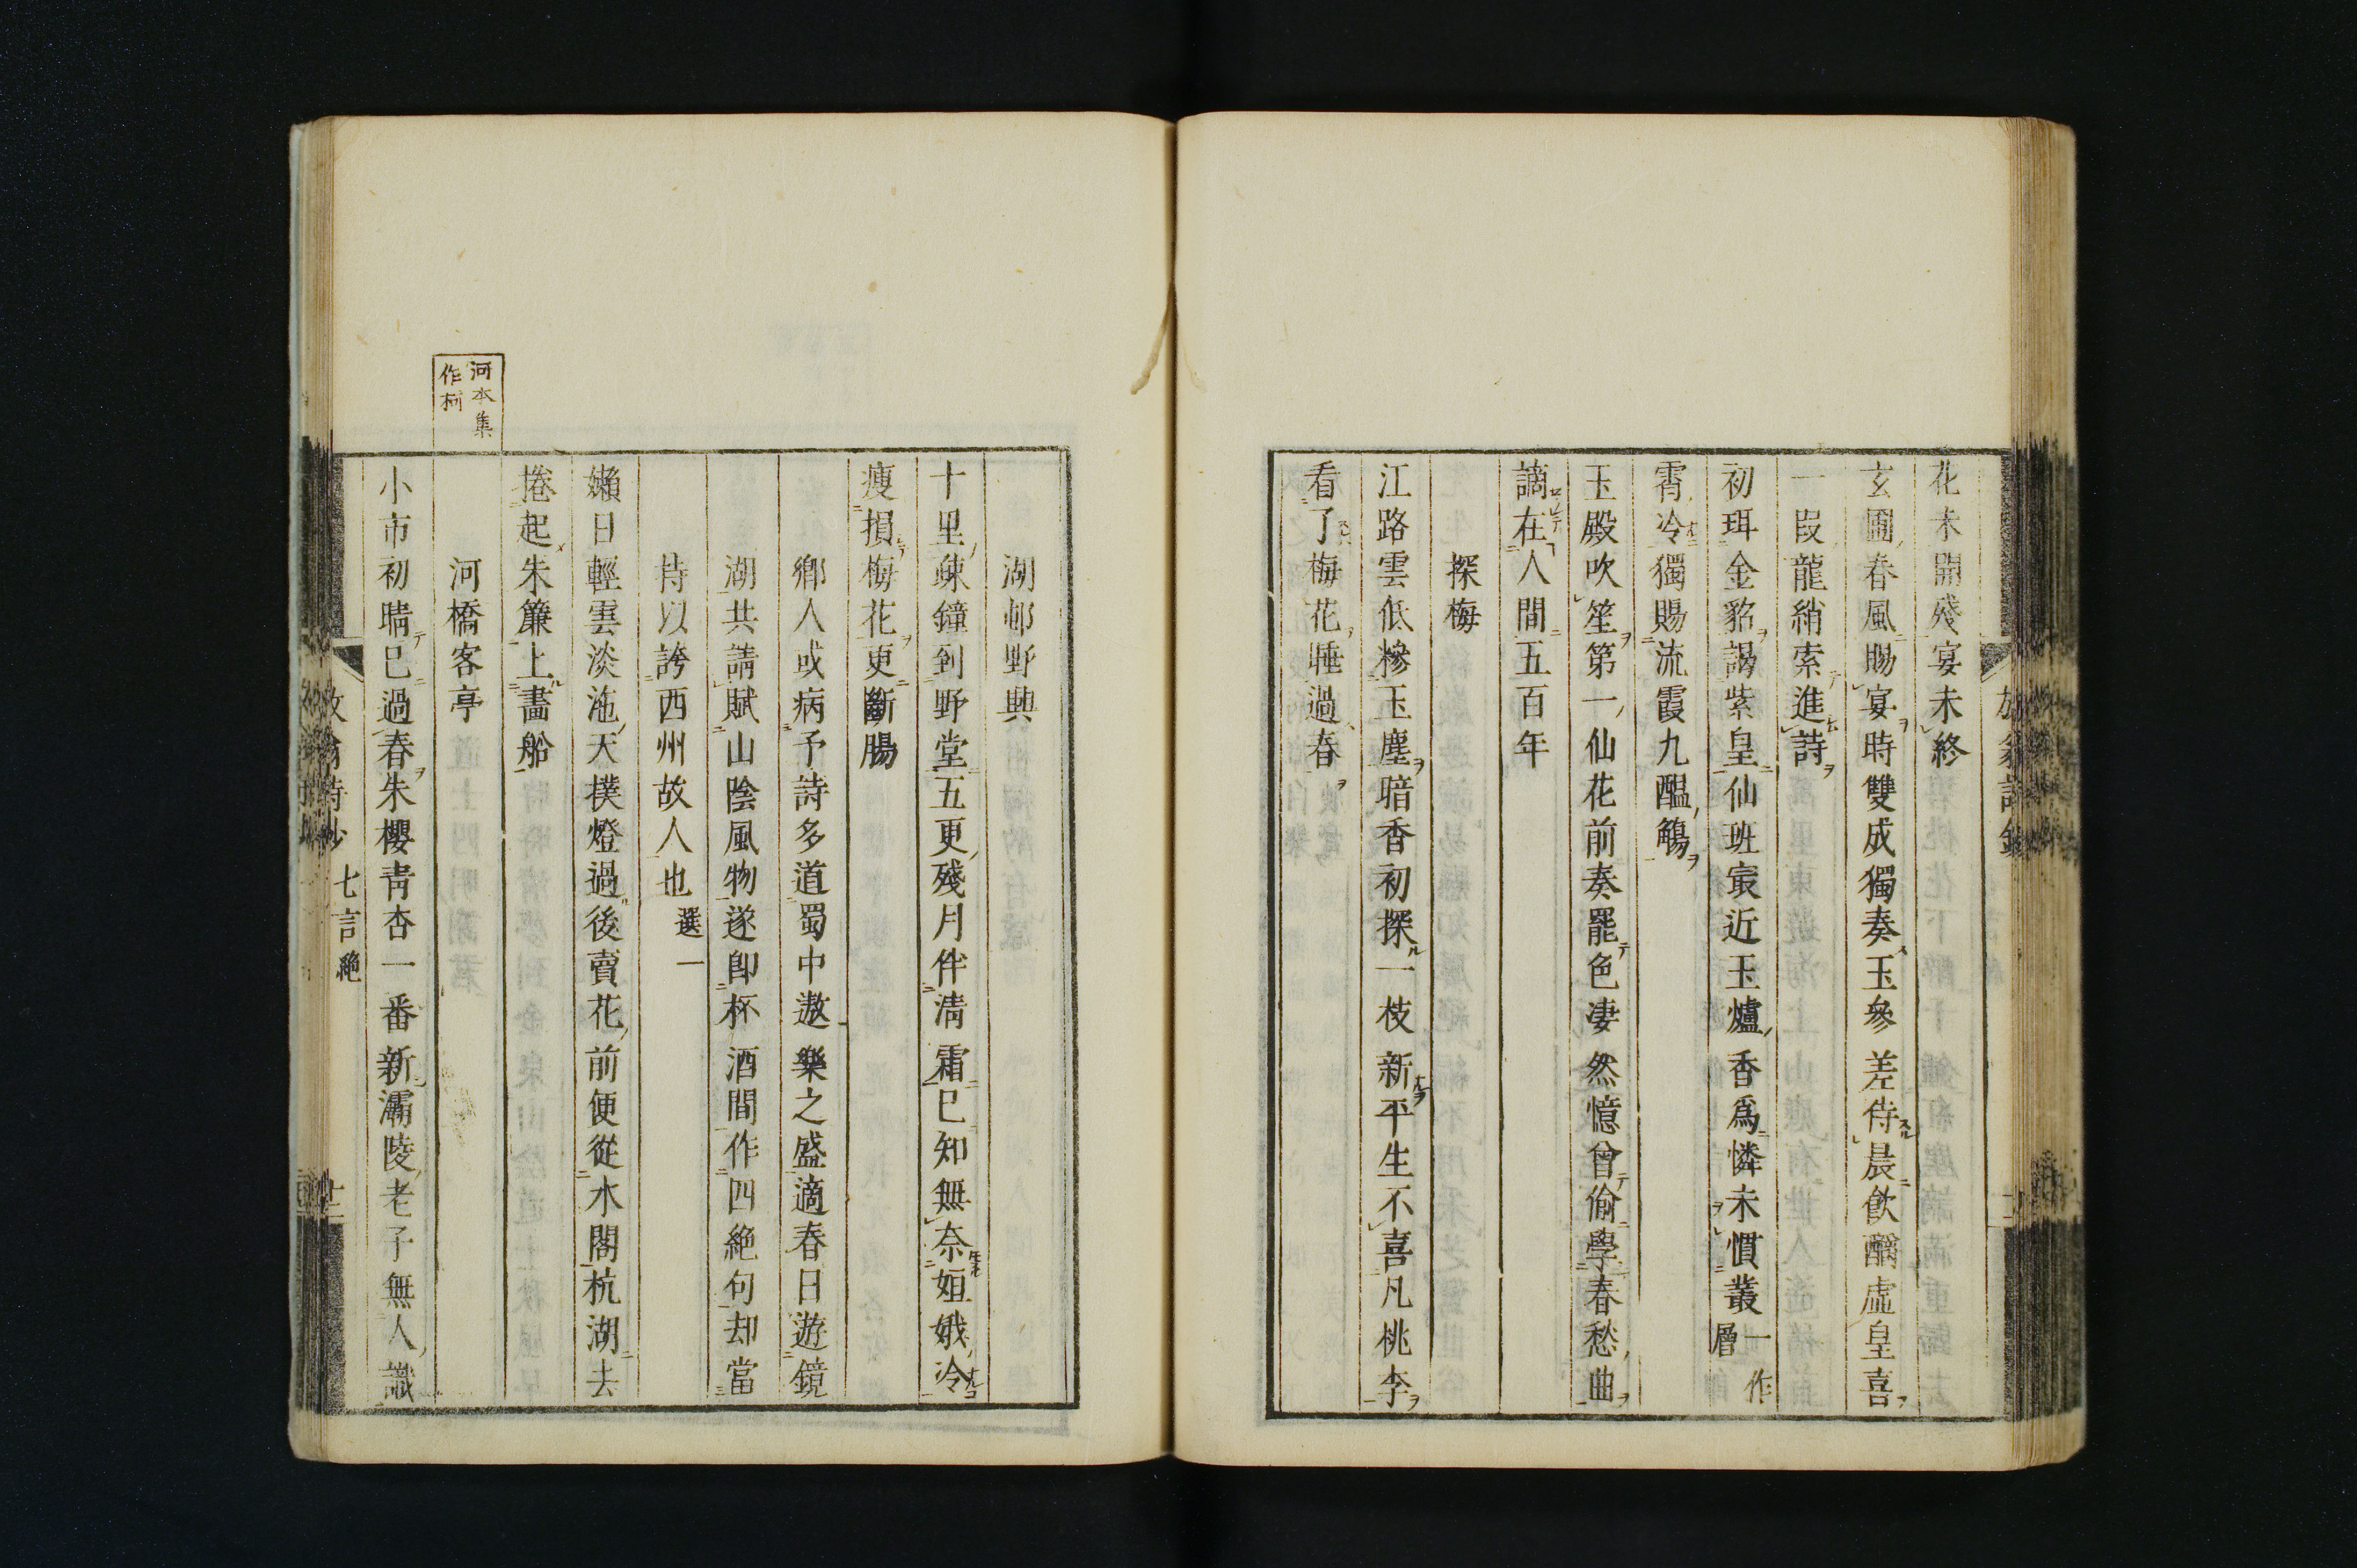 花未開殘宴未終
玄圃春風賜宴時雙成獨奏玉參差侍晨飲釂虛皇喜
一段龍綃索進詩
初珥金貂謁紫皇仙班㝡近玉爐香爲憐未慣叢一作層
霄冷獨賜流霞九醞觴
玉殿吹笙第一仙花前奏罷色凄然憶曾偷學春愁曲
謫在人間五百年
探梅
江路雲低糝玉塵暗香初探一枝新平生不喜凡桃李
看了梅花睡過春
湖邨野興
十里疎鐘到野堂五更殘月伴淸霜已知無奈姮娥冷
瘦損梅花更斷腸
鄉人或病予詩多道蜀中遨樂之盛適春日遊鏡
湖共請賦山陰風物遂卽杯酒間作四絶句却當
持以誇西州故人也 選一
嬾日輕雲淡沲天撲燈過後賣花前便從水閣杭湖去
捲起朱簾上畫船
河橋客亭
河本集
作柯
小市初晴已過春朱櫻靑杏一番新灞陵老子無人識
放翁詩鈔 七言絶 十三